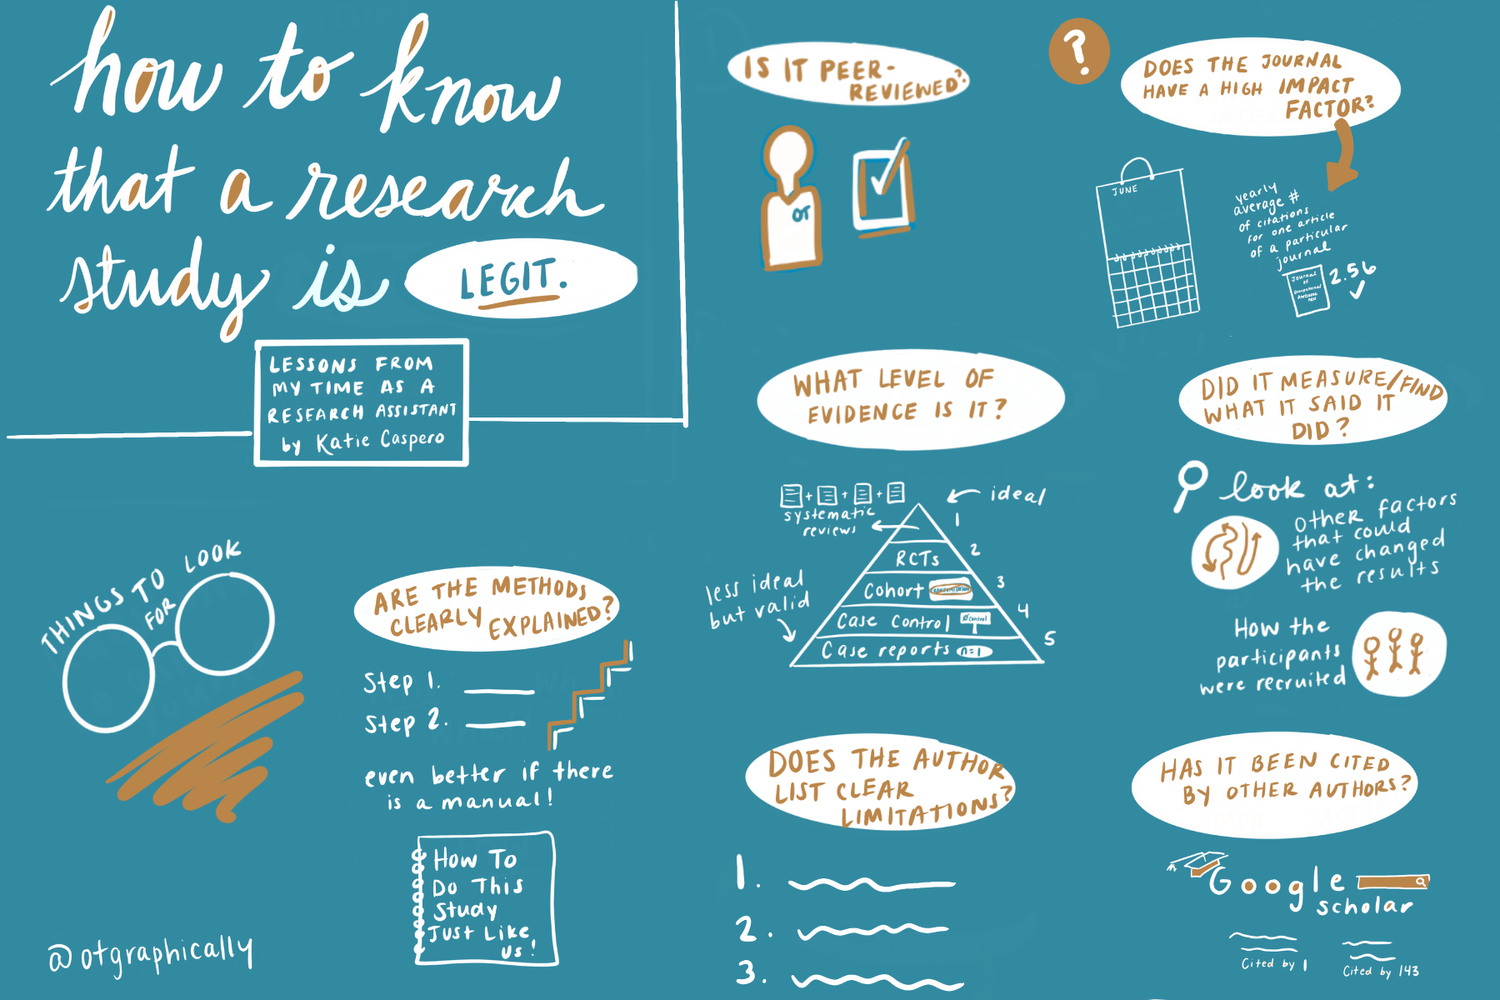 how to know
that a research
study is LEGIT.
LESSONS FROM
MY TIME AS A
RESEARCH ASSISTANT
by Katie Caspero
THINGS TO LOOK
FOR
ARE THE METHODS
CLEARLY EXPLAINED?
Step 1.
Step 2.
even better if there
is a manual!
HOW TO
DO THIS
Study
JUST LIKE
US!
@otgraphically
IS IT PEER-
REVIEWED?
OT
?
DOES THE JOURNAL
HAVE A HIGH IMPACT
FACTOR?
JUNE
yearly
average #
of citations
for one article
of a particular
journal
Journal
of
Occupational
2.56
WHAT LEVEL OF
EVIDENCE IS IT?
+ + +
systematic
reviews
ideal
1
RCTs
2
Cohort
3
Case Control
control
4
Case reports n=1
5
less ideal
but valid
DID IT MEASURE/FIND
WHAT IT SAID IT
DID?
look at:
other factors
that could
have changed
the results
How the
participants
were recruited
DOES THE AUTHOR
LIST CLEAR
LIMITATIONS?
1.
2.
3.
HAS IT BEEN CITED
BY OTHER AUTHORS?
Google
scholar
Cited by 1
Cited by 143